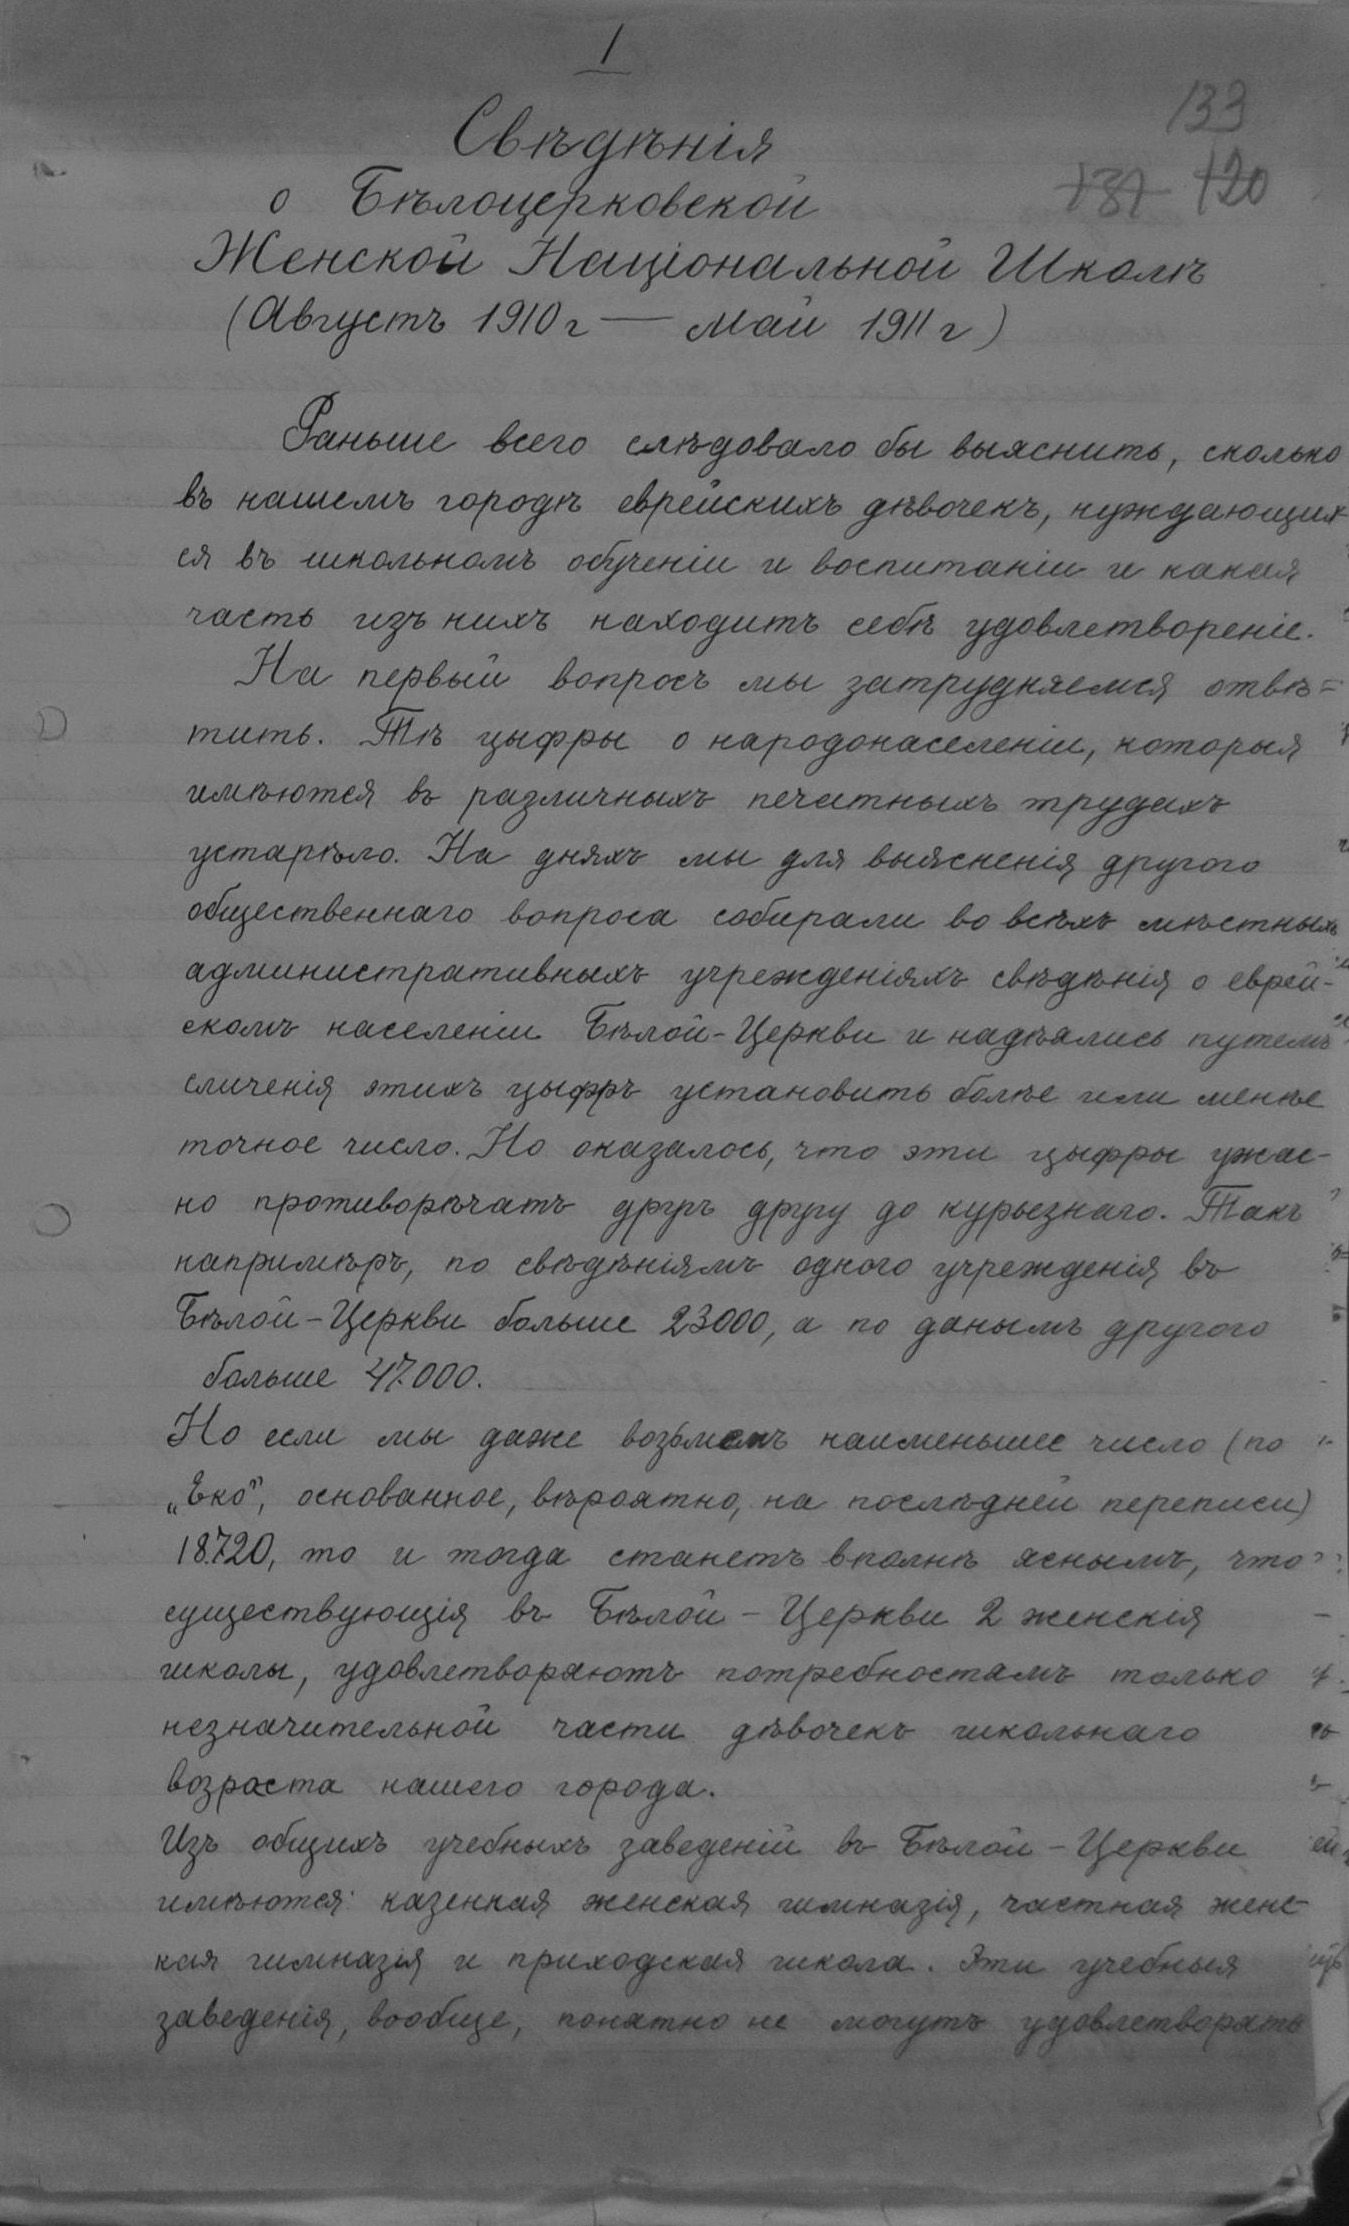 1
133
131 120
Свѣдѣнія
о Бѣлоцерковской
Женской Національной Школѣ
(Августъ 1910 г — май 1911 г)
Раньше всего слѣдовало бы выяснить, сколько
въ нашемъ городѣ еврейскихъ дѣвочекъ, нуждающих
ся въ школьномъ обученіи и воспитаніи и какая
часть изъ нихъ находитъ себѣ удовлетвореніе.
На первый вопросъ мы затрудняемся отвѣ=
тить. Тѣ цыфры о народонаселеніи, которыя
имѣются въ различныхъ печатныхъ трудахъ
устарѣло. На дняхъ мы для выясненія другого
общественнаго вопроса собирали во всѣхъ мѣстныхъ
административныхъ учрежденіяхъ свѣдѣнія о еврей-
скомъ населеніи Бѣлой-Церкви и надѣялись путемъ
сличенія этихъ цыфръ установить болѣе или менѣе
точное число. Но оказалось, что эти цыфры ужас-
но противорѣчатъ другъ другу до курьезнаго. Такъ
напримѣръ, по свѣдѣніямъ одного учрежденія въ
Бѣлой-Церкви больше 23000, а по данымъ другого
больше 47.000.
Но если мы даже возьмемъ наименьшее число (по
„Еко", основанное, вѣроятно, на послѣдней переписи)
18.720, то и тогда станетъ вполнѣ яснымъ, что
существующія въ Бѣлой-Церкви 2 женскія
школы, удовлетворяютъ потребностямъ только
незначительной части дѣвочекъ школьнаго
возраста нашего города.
Изъ общихъ учебныхъ заведеній въ Бѣлой-Церкви
имѣются: казенная женская гимназія, частная женс-
кая гимназія и приходская школа. Эти учебныя
заведенія, вообще, понятно не могутъ удовлетворять